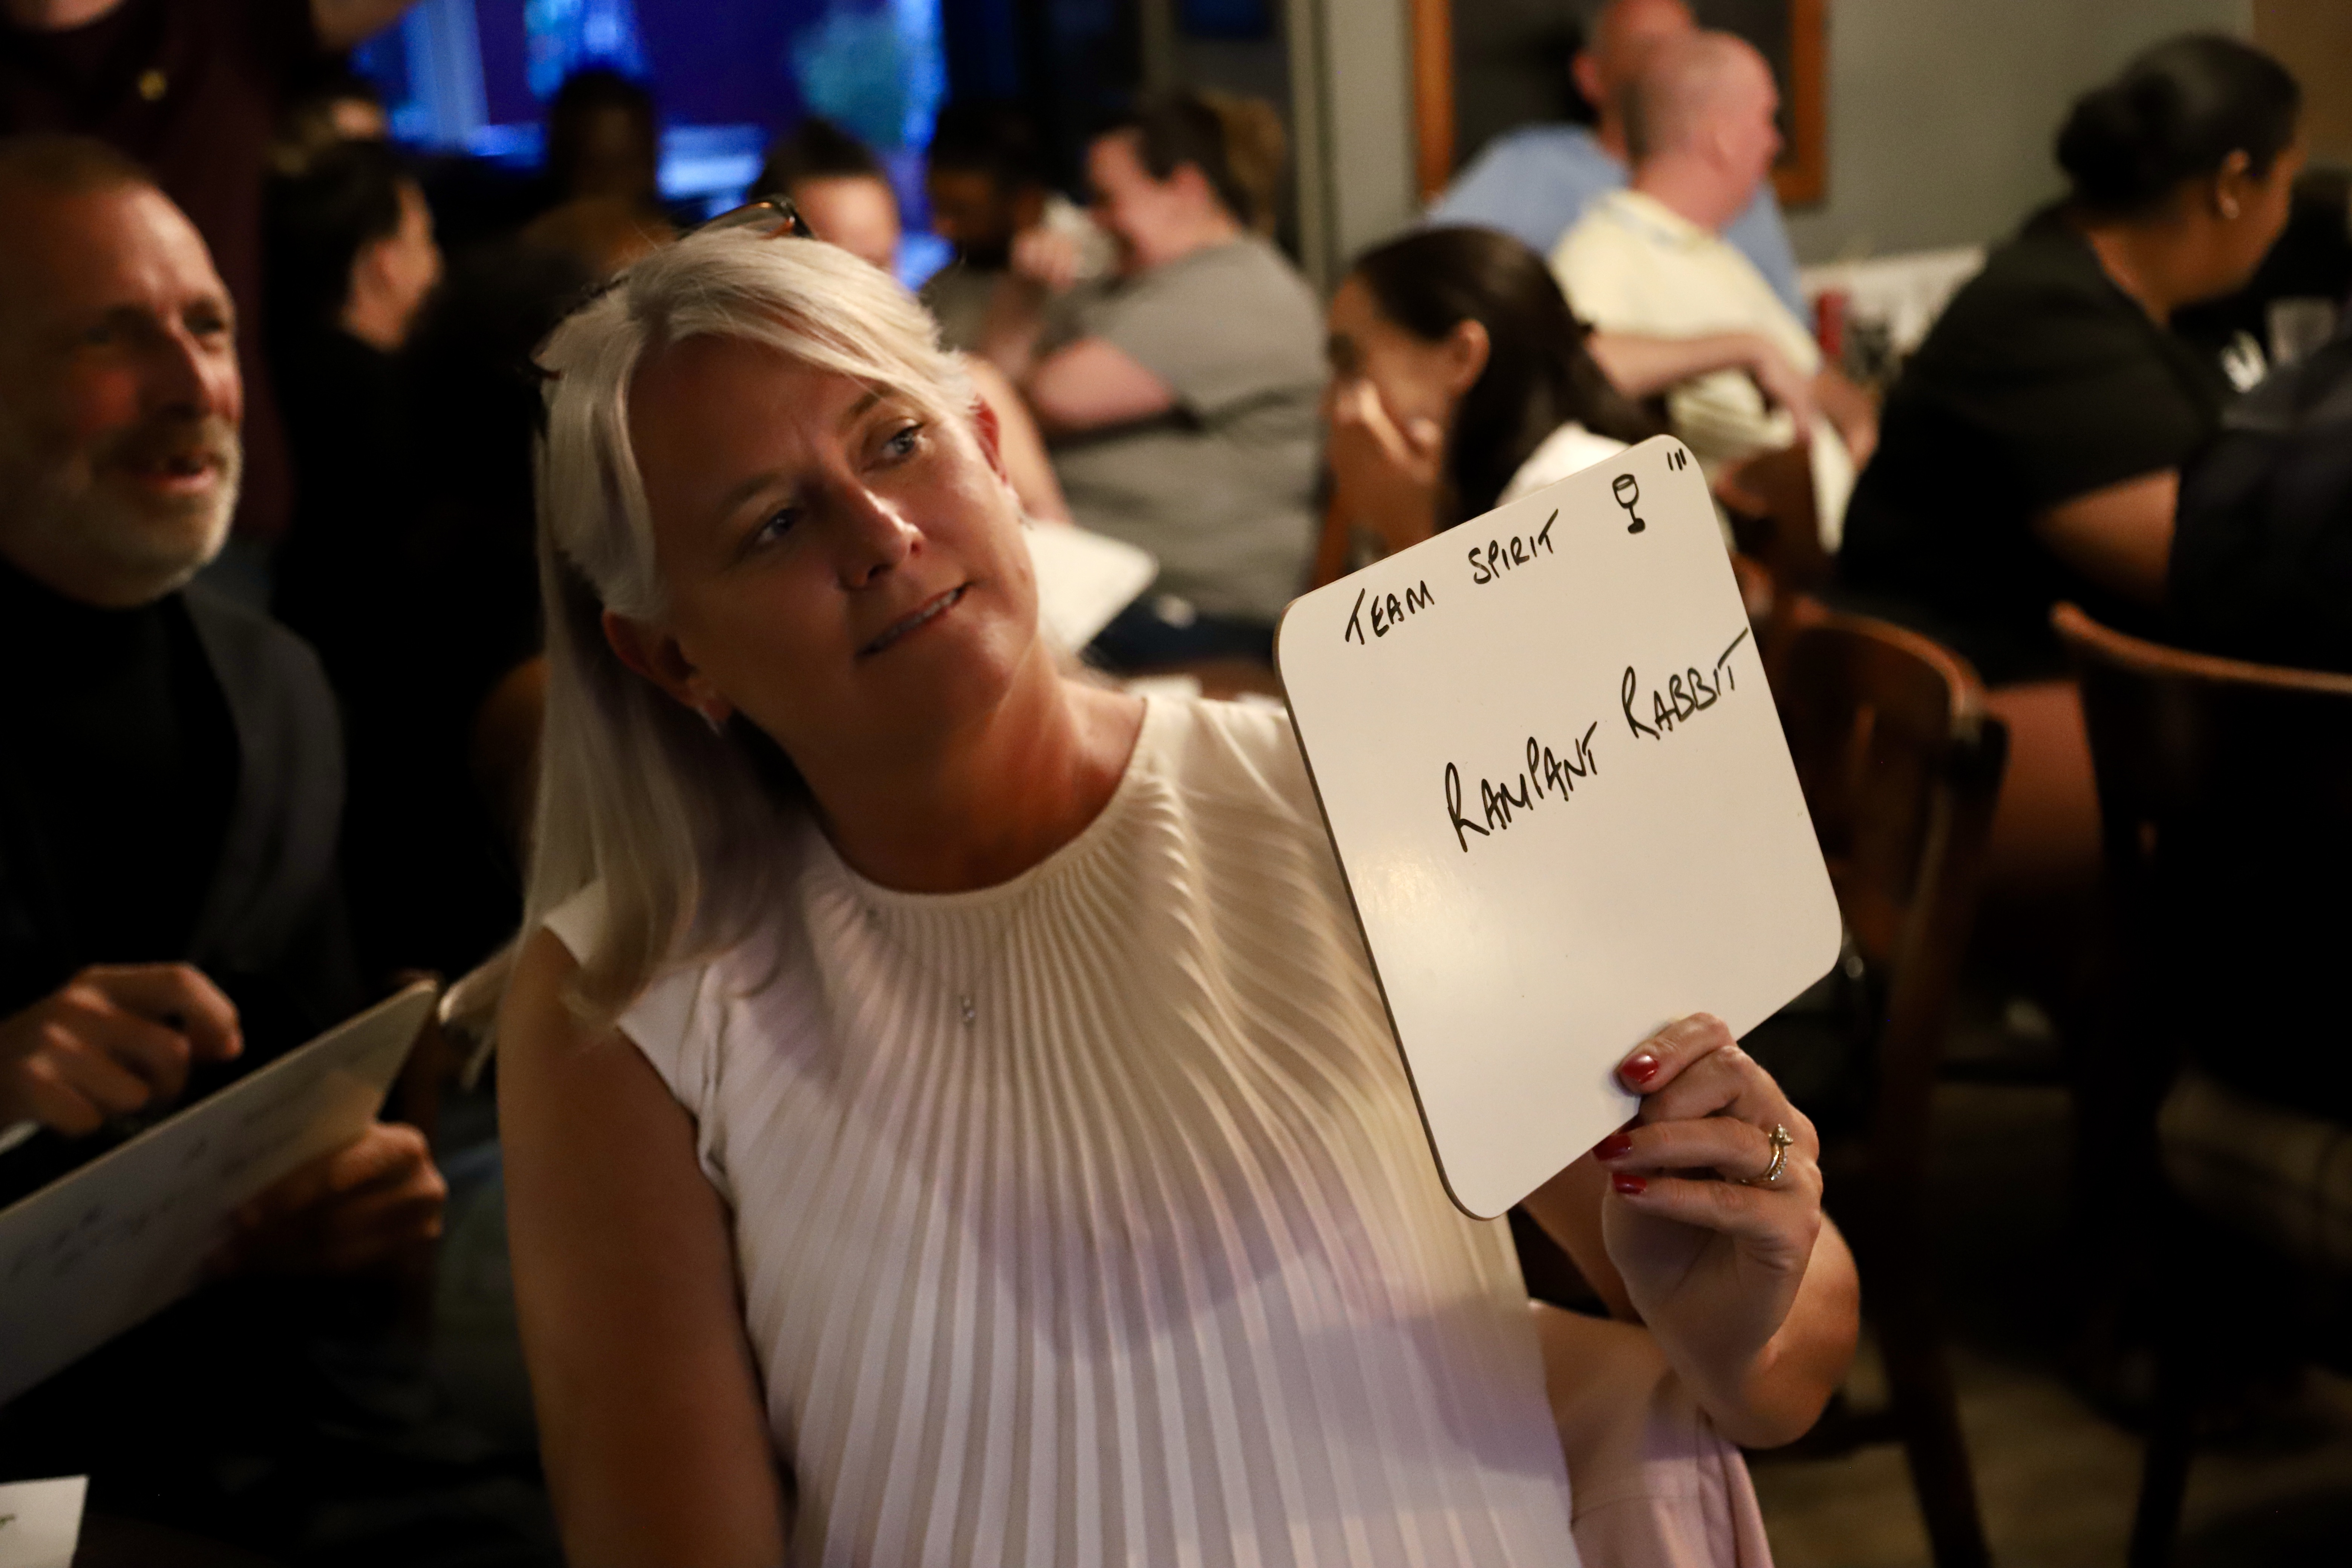 TEAM SPIRIT
RAMPANT RABBIT